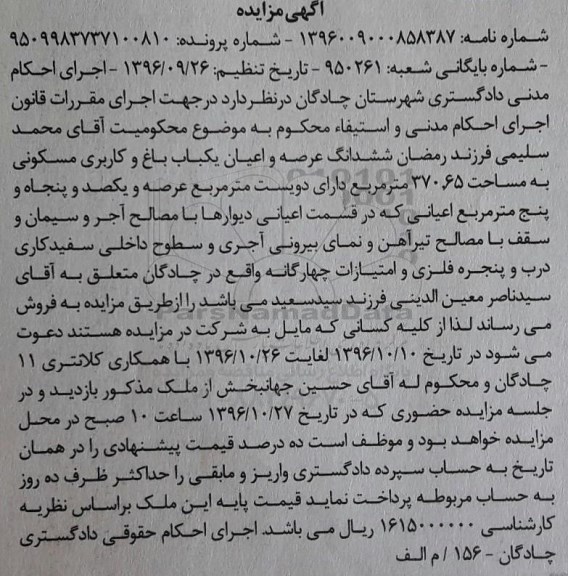 آگهی مزایده
شماره نامه: ۱۳۹۶۰۰۹۰۰۰۸۵۸۳۸۷ - شماره پرونده: ۹۵۰۹۹۸۳۷۳۷۱۰۰۸۱۰
- شماره بایگانی شعبه: ۹۵۰۲۶۱ - تاریخ تنظیم: ۱۳۹۶/۰۹/۲۶ - اجرای احکام
مدنی دادگستری شهرستان چادگان درنظر دارد درجهت اجرای مقررات قانون
اجرای احکام مدنی و استیفاء محکوم به موضوع محکومیت آقای محمد
سلیمی فرزند رمضان ششدانگ عرصه و اعیان یکباب باغ و کاربری مسکونی
به مساحت ۳۷۰,۶۵ مترمربع دارای دویست مترمربع عرصه و یکصد و پنجاه و
پنج مترمربع اعیانی که در قسمت اعیانی دیوارها با مصالح آجر و سیمان و
سقف با مصالح تیرآهن و نمای بیرونی آجری و سطوح داخلی سفیدکاری
درب و پنجره فلزی و امتیازات چهارگانه واقع در چادگان متعلق به آقای
سیدناصر معین الدینی فرزند سیدسعید می باشد را ازطریق مزایده به فروش
می رساند لذا از کلیه کسانی که مایل به شرکت در مزایده هستند دعوت
می شود در تاریخ ۱۳۹۶/۱۰/۱۰ لغایت ۱۳۹۶/۱۰/۲۶ با همکاری کلانتری ۱۱
چادگان و محکوم له آقای حسین جهانبخش از ملک مذکور بازدید و در
جلسه مزایده حضوری که در تاریخ ۱۳۹۶/۱۰/۲۷ ساعت ۱۰ صبح در محل
مزایده خواهد بود و موظف است ده درصد قیمت پیشنهادی را در همان
تاریخ به حساب سپرده دادگستری واریز و مابقی را حداکثر ظرف ده روز
به حساب مربوطه پرداخت نماید قیمت پایه این ملک براساس نظریه
کارشناسی ۱۶۱۵۰۰۰۰۰۰ ریال می باشد. اجرای احکام حقوقی دادگستری
چادگان - ۱۵۶ / م الف
ParsNamadData